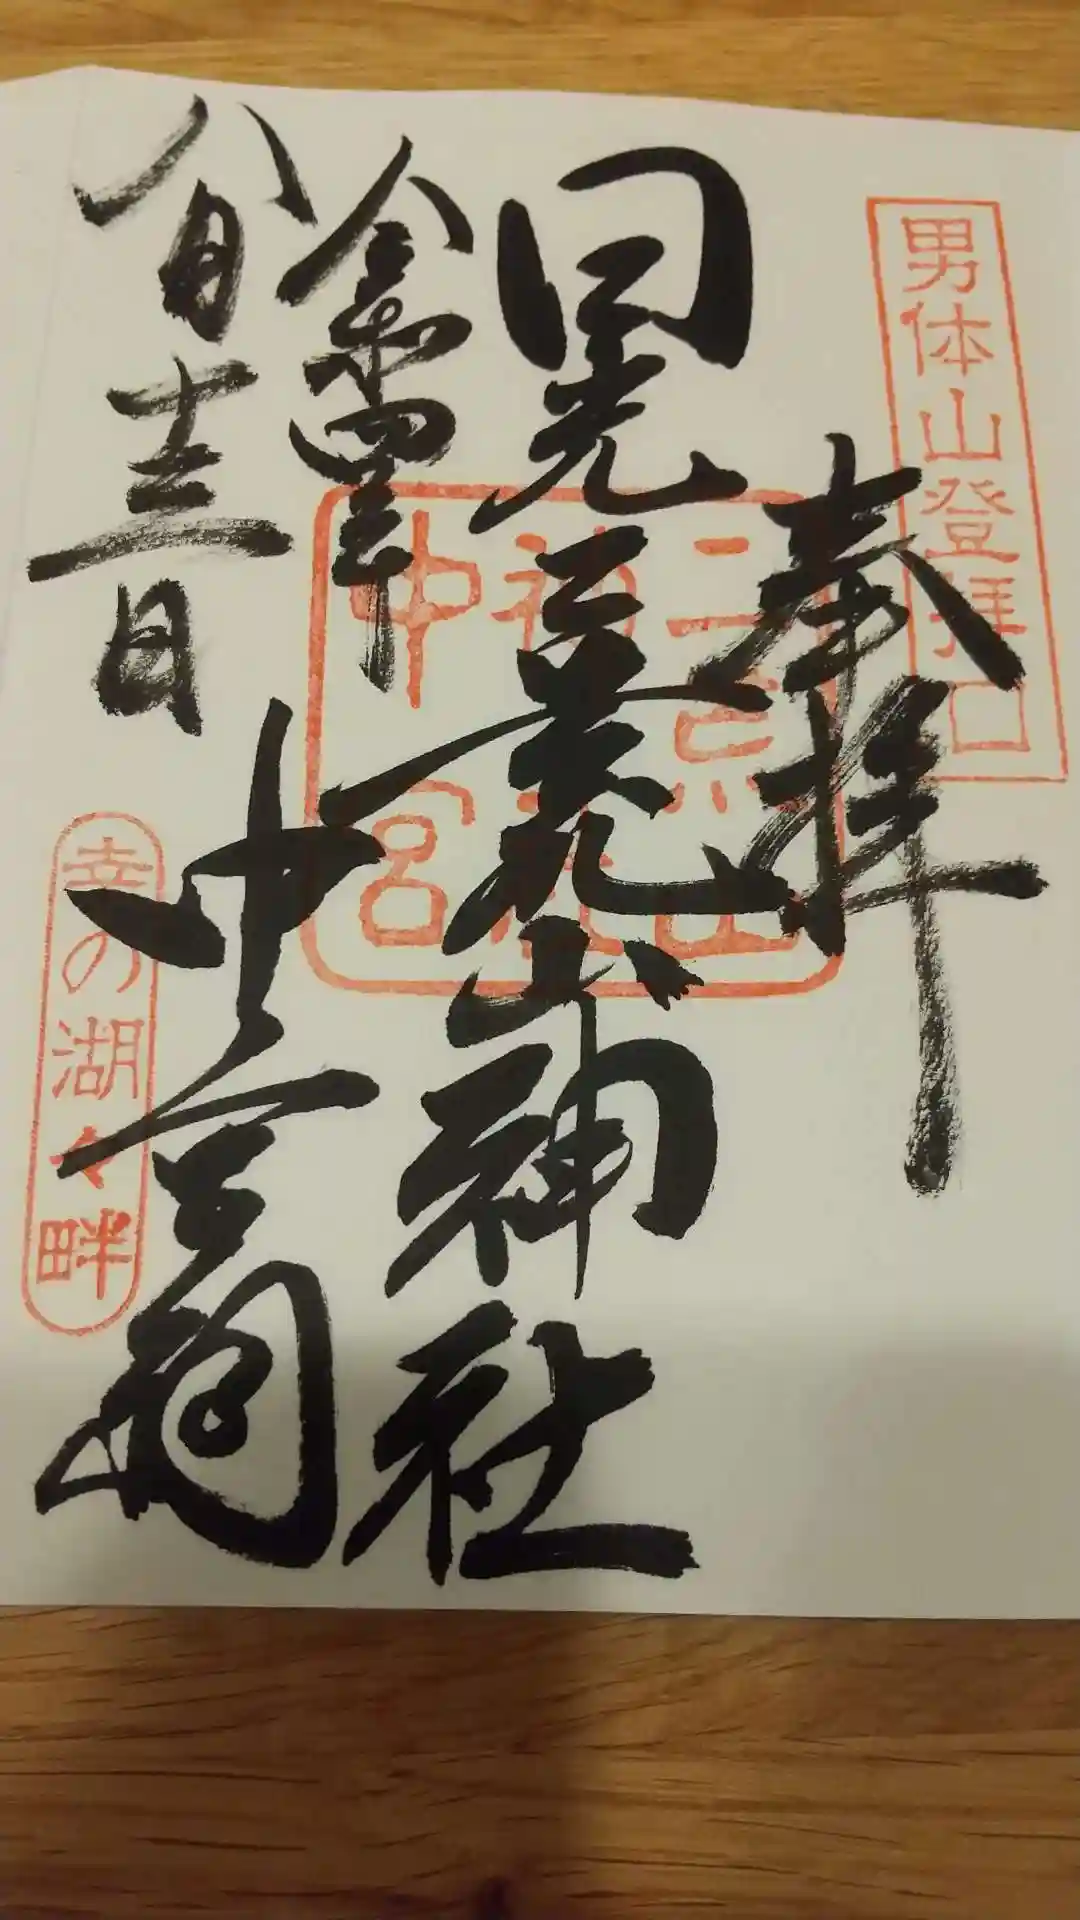 男体山登拝口
奉拝
二荒山
神社
中宮
日光二荒山神社
中宮祠
令和四年
八月十三日
幸の湖々畔